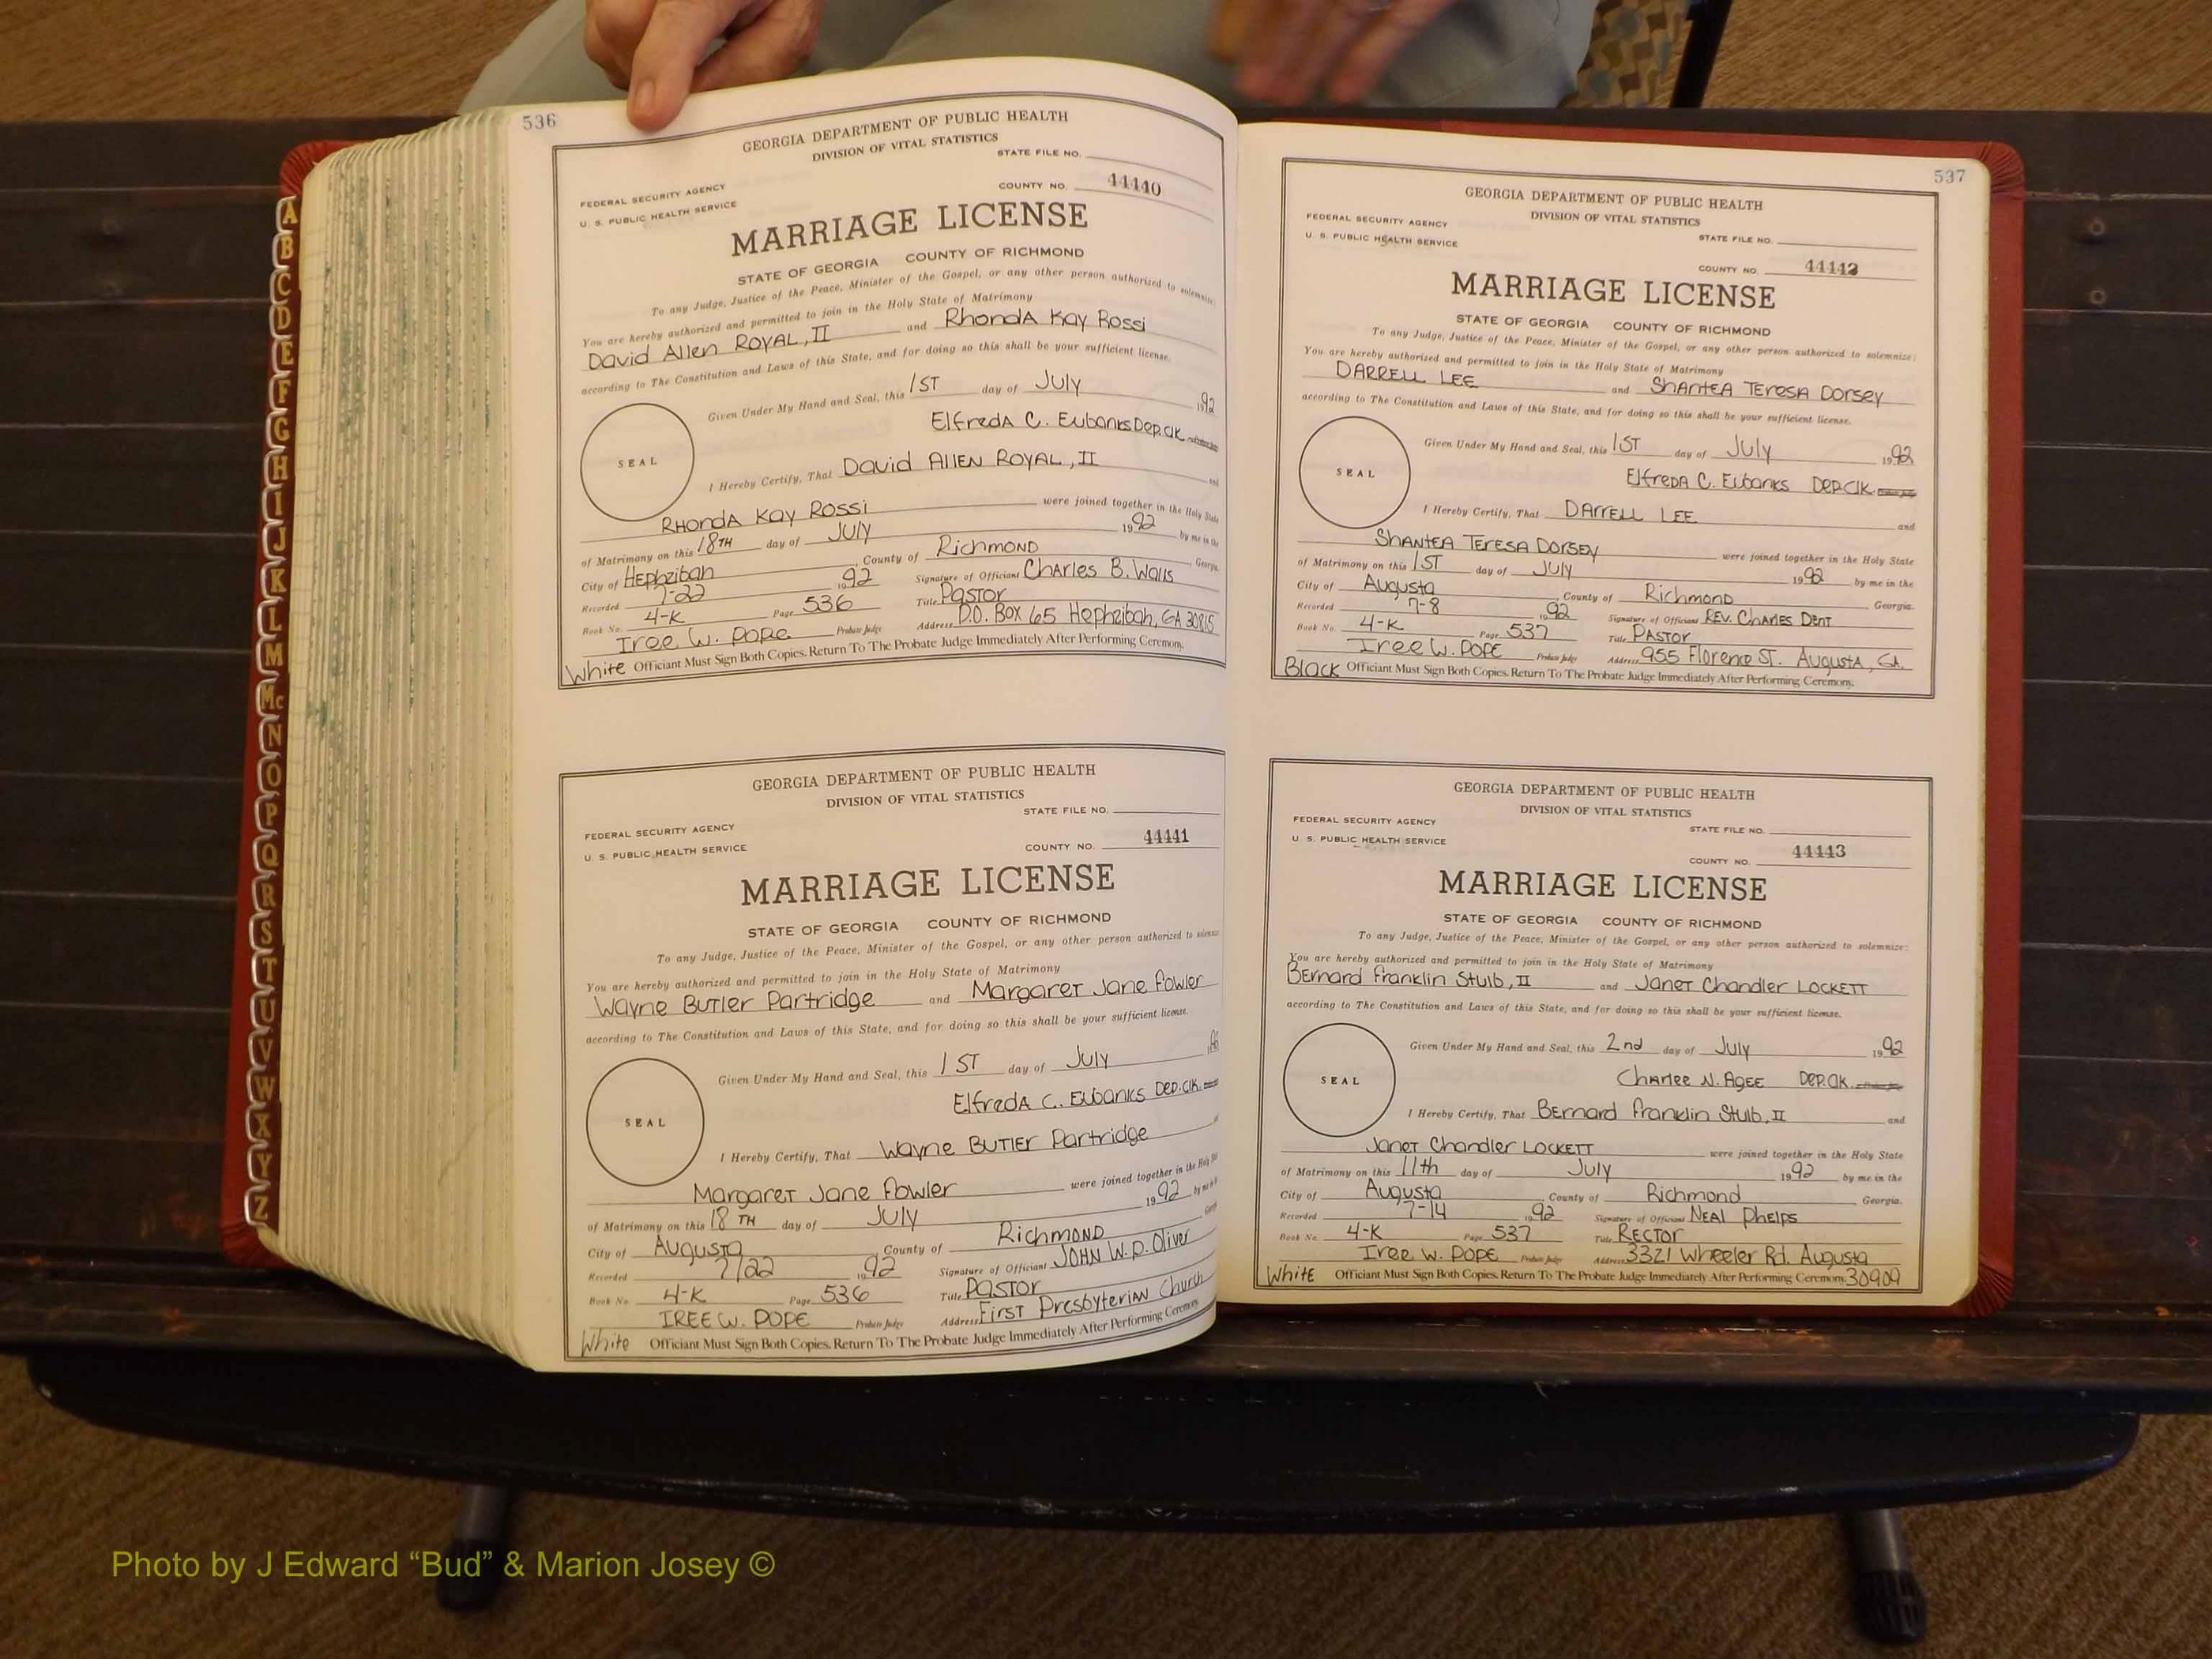 A
B
C
D
E
F
G
H
I
J
K
L
M
Mc
N
O
P
Q
R
S
T
U
V
W
X
Y
Z
536
GEORGIA DEPARTMENT OF PUBLIC HEALTH
DIVISION OF VITAL STATISTICS
STATE FILE NO.
FEDERAL SECURITY AGENCY
U. S. PUBLIC HEALTH SERVICE
COUNTY NO. 44440
MARRIAGE LICENSE
STATE OF GEORGIA COUNTY OF RICHMOND
To any Judge, Justice of the Peace, Minister of the Gospel, or any other person authorized to solemnize:
You are hereby authorized and permitted to join in the Holy State of Matrimony
David Allen ROYAL, II and RhondA Kay Rossi
according to The Constitution and Laws of this State, and for doing so this shall be your sufficient license.
Given Under My Hand and Seal, this 1ST day of July 1992
ElfredA C. Eubanks Dep.Clk.
SEAL
I Hereby Certify, That David Allen ROYAL, II and
RHondA Kay Rossi were joined together in the Holy State
of Matrimony on this 18TH day of JULY 1992 by me in the
City of Hephzibah, County of Richmond Georgia.
Recorded 7-22 1992 Signature of Officiant Charles B. Walls
Book No. 4-K Page 536 Title Pastor
Iree W. Pope Probate Judge Address P.O. Box 65 Hephzibah, GA 30815
White Officiant Must Sign Both Copies. Return To The Probate Judge Immediately After Performing Ceremony.
GEORGIA DEPARTMENT OF PUBLIC HEALTH
DIVISION OF VITAL STATISTICS
STATE FILE NO.
FEDERAL SECURITY AGENCY
U. S. PUBLIC HEALTH SERVICE
COUNTY NO. 44441
MARRIAGE LICENSE
STATE OF GEORGIA COUNTY OF RICHMOND
To any Judge, Justice of the Peace, Minister of the Gospel, or any other person authorized to
You are hereby authorized and permitted to join in the Holy State of Matrimony
Wayne Butler Partridge and Margaret Jane Fowler
according to The Constitution and Laws of this State, and for doing so this shall be your sufficient license.
Given Under My Hand and Seal, this 1ST day of July
ElfredA C. Eubanks Dep.Clk.
SEAL
I Hereby Certify, That Wayne Butler Partridge
Margaret Jane Fowler were joined together in the Holy
of Matrimony on this 18TH day of JULY 1992 by me
City of Augusta, County of Richmond
Recorded 7/22 1992 Signature of Officiant JOHN W. P. Oliver
Book No. 4-K Page 536 Title Pastor
IREE W. POPE Probate Judge Address First Presbyterian Church
White Officiant Must Sign Both Copies. Return To The Probate Judge Immediately After Performing Ceremony.
537
GEORGIA DEPARTMENT OF PUBLIC HEALTH
DIVISION OF VITAL STATISTICS
FEDERAL SECURITY AGENCY
U. S. PUBLIC HEALTH SERVICE
STATE FILE NO.
COUNTY NO. 44442
MARRIAGE LICENSE
STATE OF GEORGIA COUNTY OF RICHMOND
To any Judge, Justice of the Peace, Minister of the Gospel, or any other person authorized to solemnize:
You are hereby authorized and permitted to join in the Holy State of Matrimony
DARRELL LEE and SHANTEA TERESA DORSEY
according to The Constitution and Laws of this State, and for doing so this shall be your sufficient license.
Given Under My Hand and Seal, this 1ST day of July 1992
ElfredA C. Eubanks Dep.Clk.
SEAL
I Hereby Certify, That DARRELL LEE and
SHANTEA TERESA DORSEY were joined together in the Holy State
of Matrimony on this 1ST day of JULY 1992 by me in the
City of Augusta, County of Richmond Georgia.
Recorded 7-8 1992 Signature of Officiant REV. Charles Dent
Book No. 4-K Page 537 Title PASTOR
Iree W. POPE Probate Judge Address 955 Florence ST. AugustA, GA.
Black Officiant Must Sign Both Copies. Return To The Probate Judge Immediately After Performing Ceremony.
GEORGIA DEPARTMENT OF PUBLIC HEALTH
DIVISION OF VITAL STATISTICS
FEDERAL SECURITY AGENCY
U. S. PUBLIC HEALTH SERVICE
STATE FILE NO.
COUNTY NO. 44443
MARRIAGE LICENSE
STATE OF GEORGIA COUNTY OF RICHMOND
To any Judge, Justice of the Peace, Minister of the Gospel, or any other person authorized to solemnize:
You are hereby authorized and permitted to join in the Holy State of Matrimony
Bernard Franklin Stulb, II and Janet Chandler LOCKETT
according to The Constitution and Laws of this State, and for doing so this shall be your sufficient license.
Given Under My Hand and Seal, this 2nd day of July 1992
Charlee N. Agee Dep.Clk.
SEAL
I Hereby Certify, That Bernard Franklin Stulb, II and
Janet Chandler LOCKETT were joined together in the Holy State
of Matrimony on this 11th day of July 1992 by me in the
City of Augusta, County of Richmond Georgia.
Recorded 7-14 1992 Signature of Officiant NEAL Phelps
Book No. 4-K Page 537 Title RECTOR
Iree W. POPE Probate Judge Address 3321 Wheeler Rd. Augusta
White Officiant Must Sign Both Copies. Return To The Probate Judge Immediately After Performing Ceremony. 30909
Photo by J Edward “Bud” & Marion Josey ©